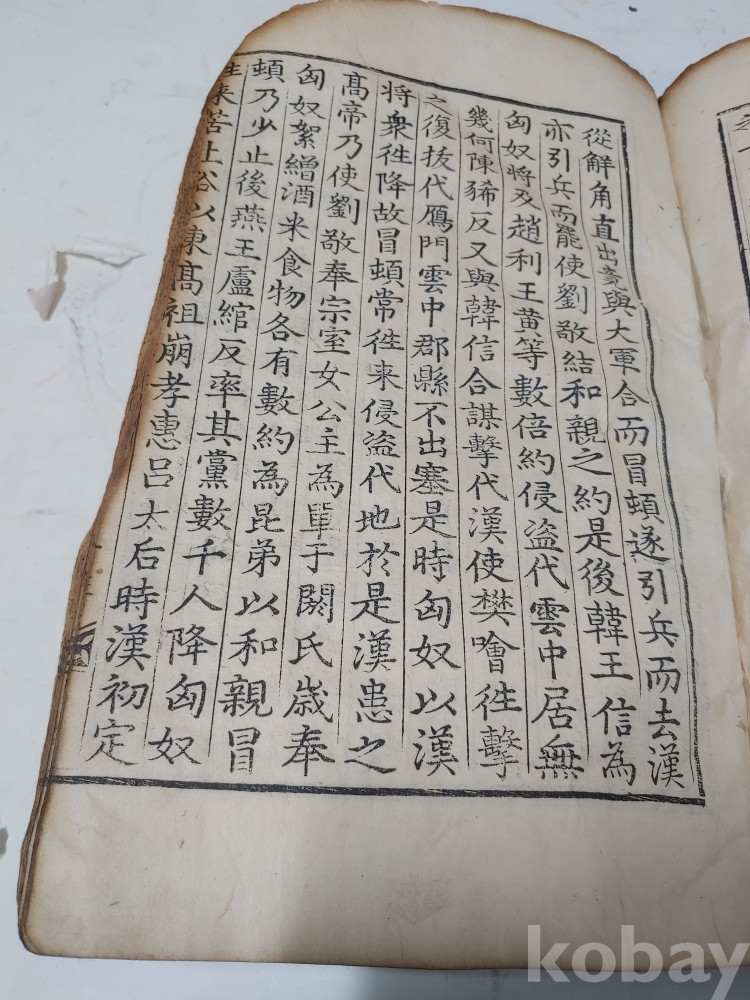 從觧角直出竟與大軍合而冒頓遂引兵而去漢
亦引兵而罷使劉敬結和親之約是後韓王信為
匈奴將及趙利王黄等數倍約侵盗代雲中居無
幾何陳豨反又與韓信合謀擊代漢使樊噲徃擊
之復抜代鴈門雲中郡縣不出塞是時匈奴以漢
將衆徃降故冒頓常徃来侵盗代地於是漢患之
髙帝乃使劉敬奉宗室女公主為單于閼氏歳奉
匈奴絮繒酒米食物各有數約為昆弟以和親冒
頓乃少止後燕王盧綰反率其黨數千人降匈奴
徃来苦上谷以東髙祖崩孝惠吕太后時漢初定
kobay